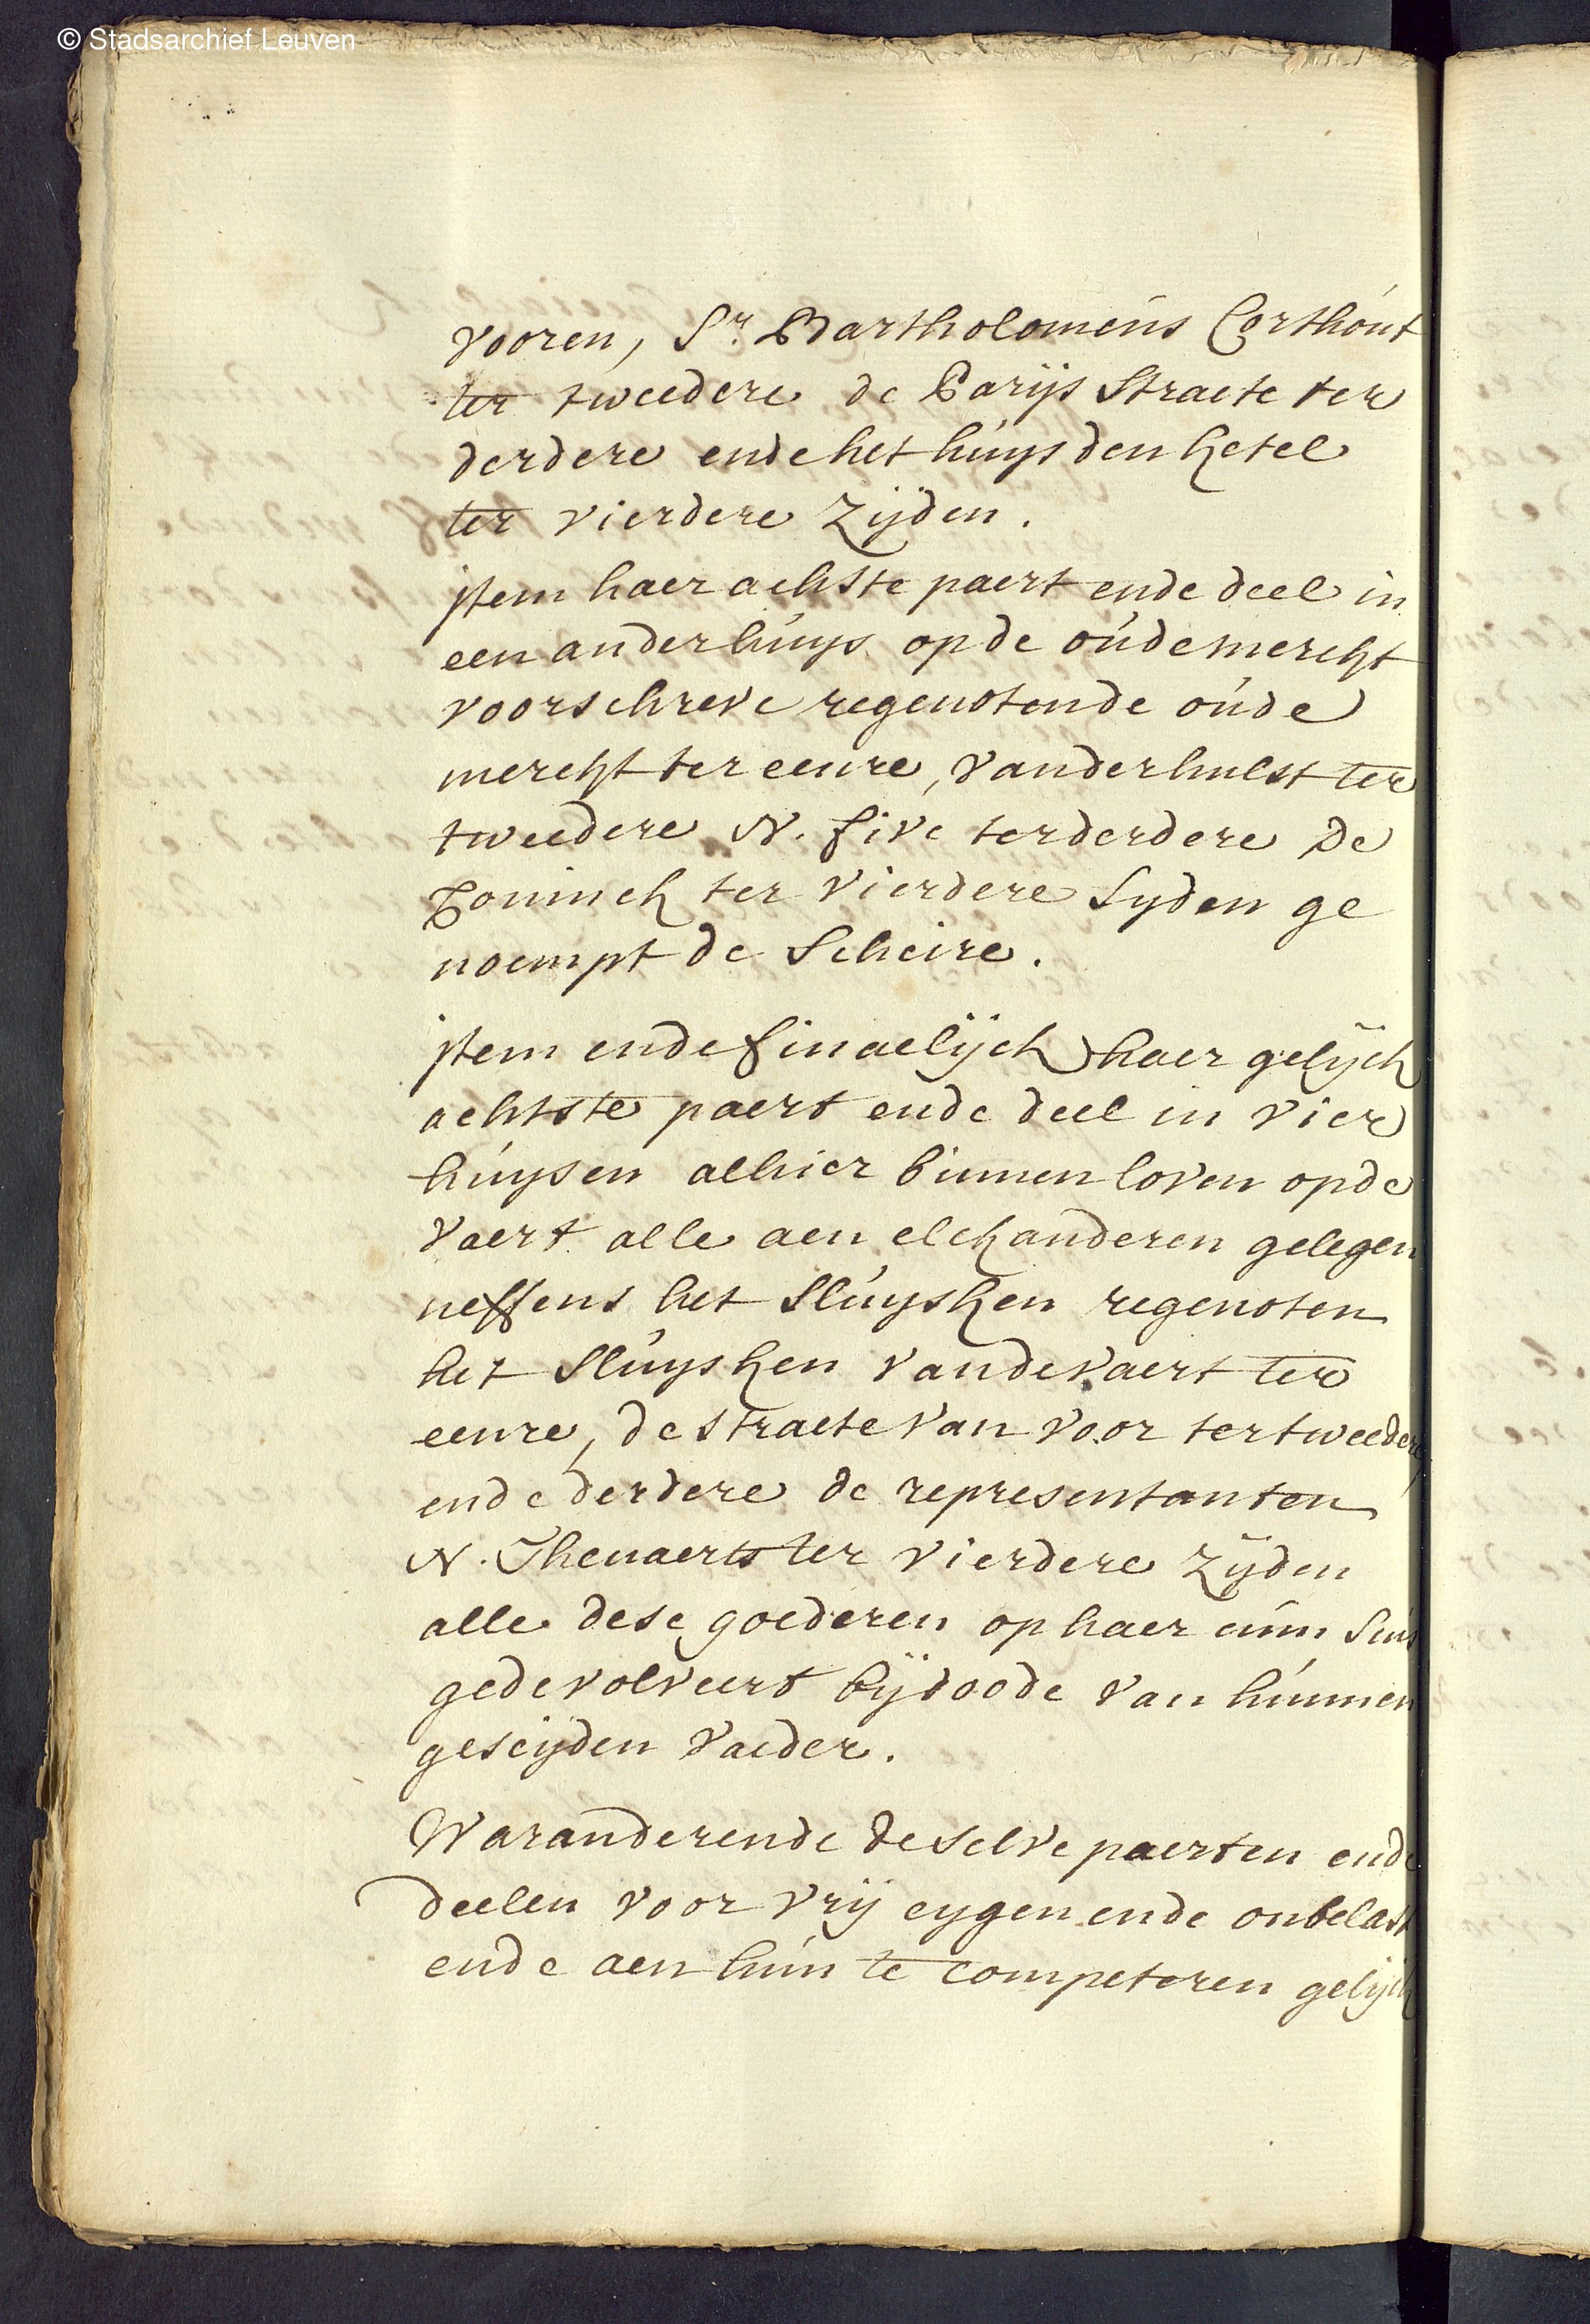 © Stadsarchief Leuven
vooren, Sr. Bartholomeús Corthoút
ter tweedere de Parijs Straete ter
derdere ende het húys den ketel
ter vierdere Zijden.
jtem haer achste paert ende deel in
een ander húys op de oúdemerckt
voorschreve regenotende oúde
merckt ter eenre, vanderhulst ter
tweedere N. five ter derdere De
Coninck ter vierdere Syden ge
noempt de Scheire.
jtem ende finaelijck haer gelijck
achtste paert ende deel in vier
húysen alhier binnen loven op de
vaert alle aen elckanderen gelegen
neffens het Slúysken regenoten
het Slúysken vande vaert ter
eenre, de straete van voor ter tweedere
ende derdere de representanten
N. Thenaerts ter vierdere Zijden
alle dese goederen op haer cúm Suis
gedevolveert bij doode van húnnen
geseijden vaeder.
Waranderende de selve paerten ende
deelen voor vrij eygen ende onbelast
ende aen hún te competeren gelijck